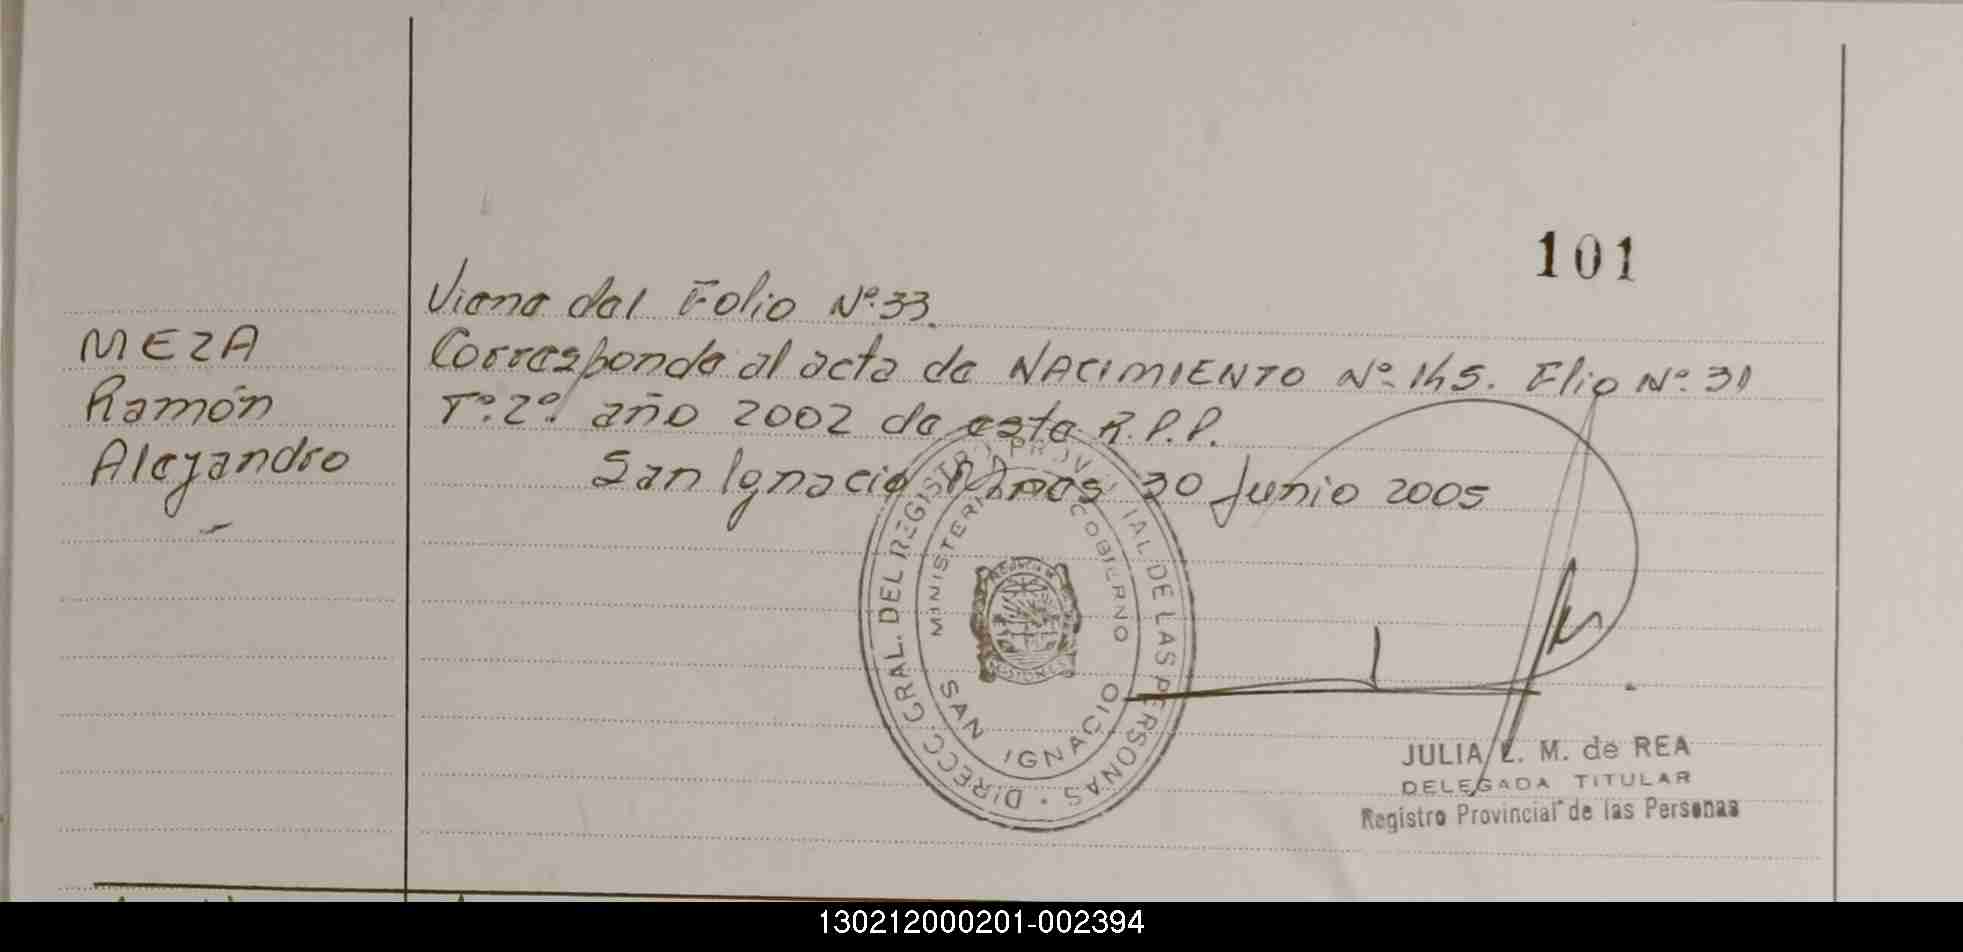 101
Viene del Folio Nº.33.
MEZA
Ramón
Alejandro
Corresponde al acta de NACIMIENTO Nº.145. Flio Nº.31
Tº.2º. año 2002 de este R.P.P.
San Ignacio 30 Junio 2005
DIRECC. GRAL. DEL REGISTRO PROVINCIAL DE LAS PERSONAS
MINISTERIO GOBIERNO
MISIONES
SAN IGNACIO
JULIA L. M. de REA
DELEGADA TITULAR
Registro Provincial de las Personas
130212000201-002394